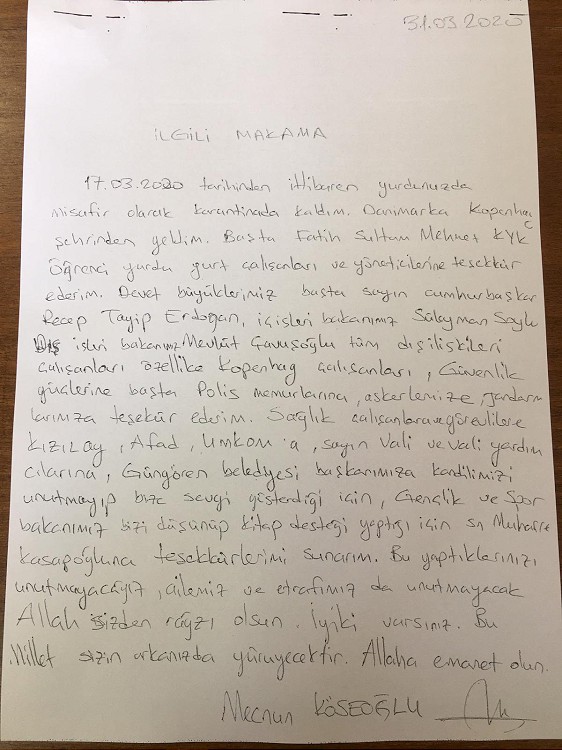 31.03.2020
İLGİLİ MAKAMA
17.03.2020 tarihinden ittibaren yurdunuzda
misafir olarak karantinada kaldım. Danimarka Kopenhag
şehrinden geldim. Başta Fatih Sultan Mehmet KYK
Öğrenci yurdu yurt çalışanları ve yöneticilerine teşekkür
ederim. Devet büyüklerimiz başta sayın cumhurbaşkan
Recep Tayip Erdoğan, içişleri bakanımız Süleyman Soylu
Dış işleri bakanımız Mevlüt Çavuşoğlu tüm dışilişkileri
çalışanları özellike Kopenhag çalışanları, Güvenlik
güçlerine başta Polis memurlarına, askerlemize, jandarm
larımıza teşekür ederim. Sağlık çalışanlara ve görevlilere
KIZILAY, Afad, Umkom'a, sayın Vali ve Vali yardım
cılarına, Güngören belediyesi başkanımıza kandilimizi
unutmayıp bize sevgi gösterdiği için, Gençlik ve Spor
bakanımız bizi düşünüp kitap desteği yaptığı için sn Muharre
Kasapoğluna teşekkürlerimi sunarım. Bu yaptıklerinızı
unutmayacağız, ailemiz ve etrafımız da unutmayacak
Allah sizden râyzı olsun. İyiki varsınız. Bu
Millet sizin arkanızda yürüyecektir. Allaha emanet olun.
Mecnun KÖSEOĞLU